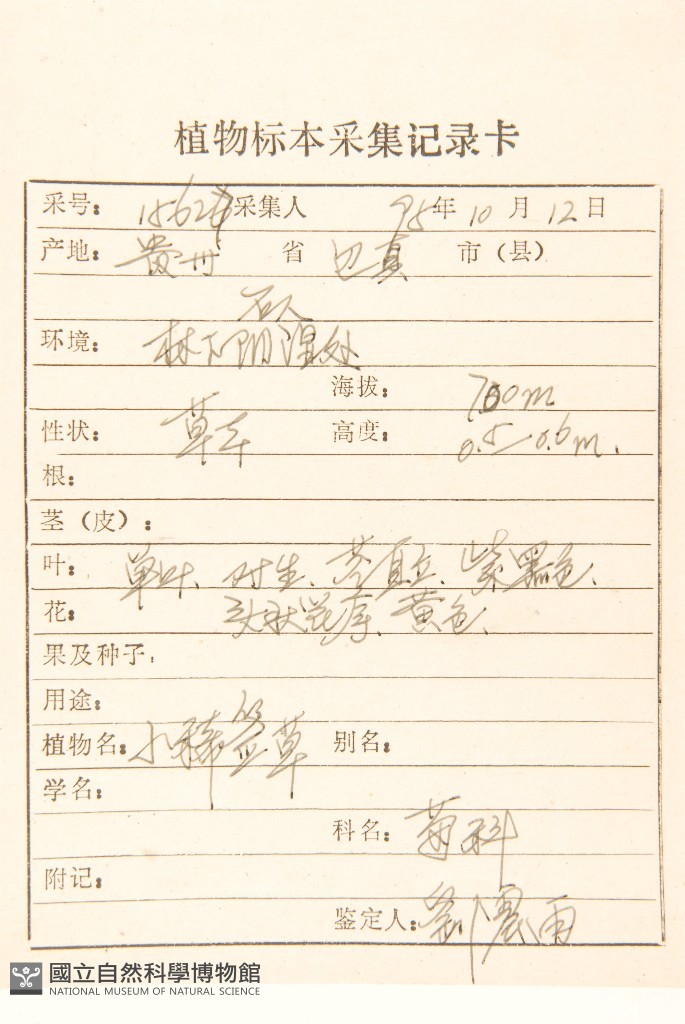 植物标本采集记录卡
采号: 采集人 95年10月12日
产地: 贵州 省 市(县)
环境: 林下阴湿处
海拔: 700m
性状: 草本 高度: 0.5-0.6m.
根:
茎(皮):
叶: 单叶、对生、茎直立、紫黑色、
花: 头状花序、黄色、
果及种子:
用途:
植物名: 小豨签草 别名:
学名:
科名: 菊科
附记:
鉴定人:
國立自然科學博物館
NATIONAL MUSEUM OF NATURAL SCIENCE